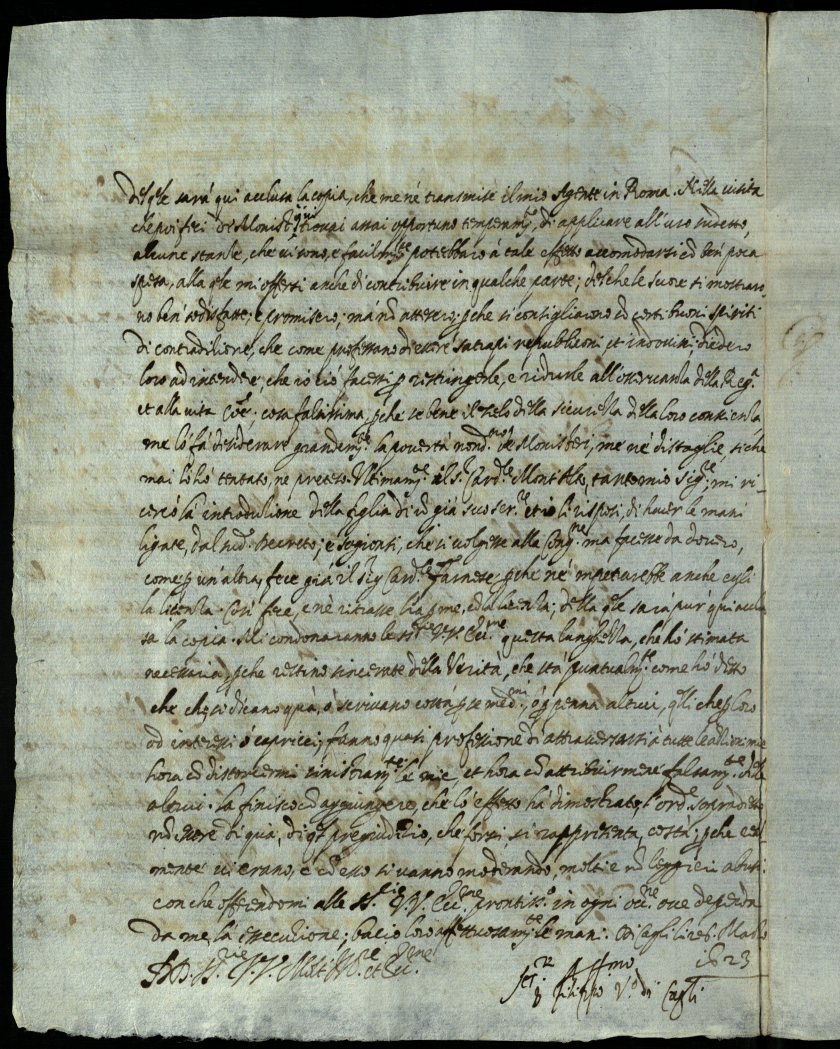 Del q.le sarà qui acclusa la copia, che me né transmise il mio Agente in Roma. Nella visita
che poi feci de Monist.ri trovai assai opportuno temperam.to, di applicare all'uso sudetto,
alcune stanze, che vi sono, e facilm.te potrebbero à tale effetto accomodarsi cõ ben poca
spesa, alla q.le mi offersi anche di contribuire in qualche parte; de che le suore si mostraro
no ben sodisfatte; e promisero; mà nõ attesero; p che si consigliarono cõ certi buoni spiriti
di contraditione, che come professano di essere satrapi republiconi, et indovini, diedero
loro ad intendere, che no ciò facessi p restringerle, e ridurle all'osservanza della Reg.a
et alla vita cõe; cosa falsissima, p che se bene il zelo della sicurezza della loro conscienza
me lo fà desiderare grandem.te la povertà nond.o de Monisteri, me né distoglie, si che
mai l'hò tentato, ne preteso. Ultimam.te il s.r Card.le Montalto, tanto mio Sig.re, mi ri-
cercò la introdutione della figlia di cõ già suo ser.re et io li risposi, di haver le mani
ligate, dal sud.o Decreto; e sogionsi, che si volgesse alla Cong.ne ma facesse da dovero,
come p un'altra, fece già il Sig.r Card.le Farnese, p che né impetrarebbe anche egli
la licenza. Così fece, e nè ritrasse la licenza; della q.le sarà pur quì acclu
sa la copia. Mi condonaranno le SS.rie VV. Ecc.me questa lunghezza, che hò stimata
necessaria, p che restino sincerate della Verità, che stà puntualm.te come hò detto
che che si dicano quà, ò scrivano costà, p se med.mi, ò p penna altrui, q.lli che p loro
od interessi ò capricci, fanno quasi professione di attraversarsi à tutte le attioni mie
hora cõ distorcermi sinistram.te le mie, et hora cõ attribuirmene falsam.te delle
altrui. La finisco cõ aggiungere, che lo effetto hà dimostrato, l'ord.e sopradetto
nõ essere di quà, di q.l pregiudicio, che forsi si rappresenta, costà; p che
mente vi erano, e cõ esso si vanno moderando, molti e nõ leggieri abusi.
con che offerendomi alle SS.rie VV. Ecc.me prontiss.o in ogni occ.ne ove dependa
da me, la essecutione; bacio loro affettuosam.te le mani. Di Cagli li 26. Marzo
1623
DD. SS.rie VV. Molt'Ill.ri et Ecc.me
Ser.re Aff.mo
Filippo V.o di Cagli